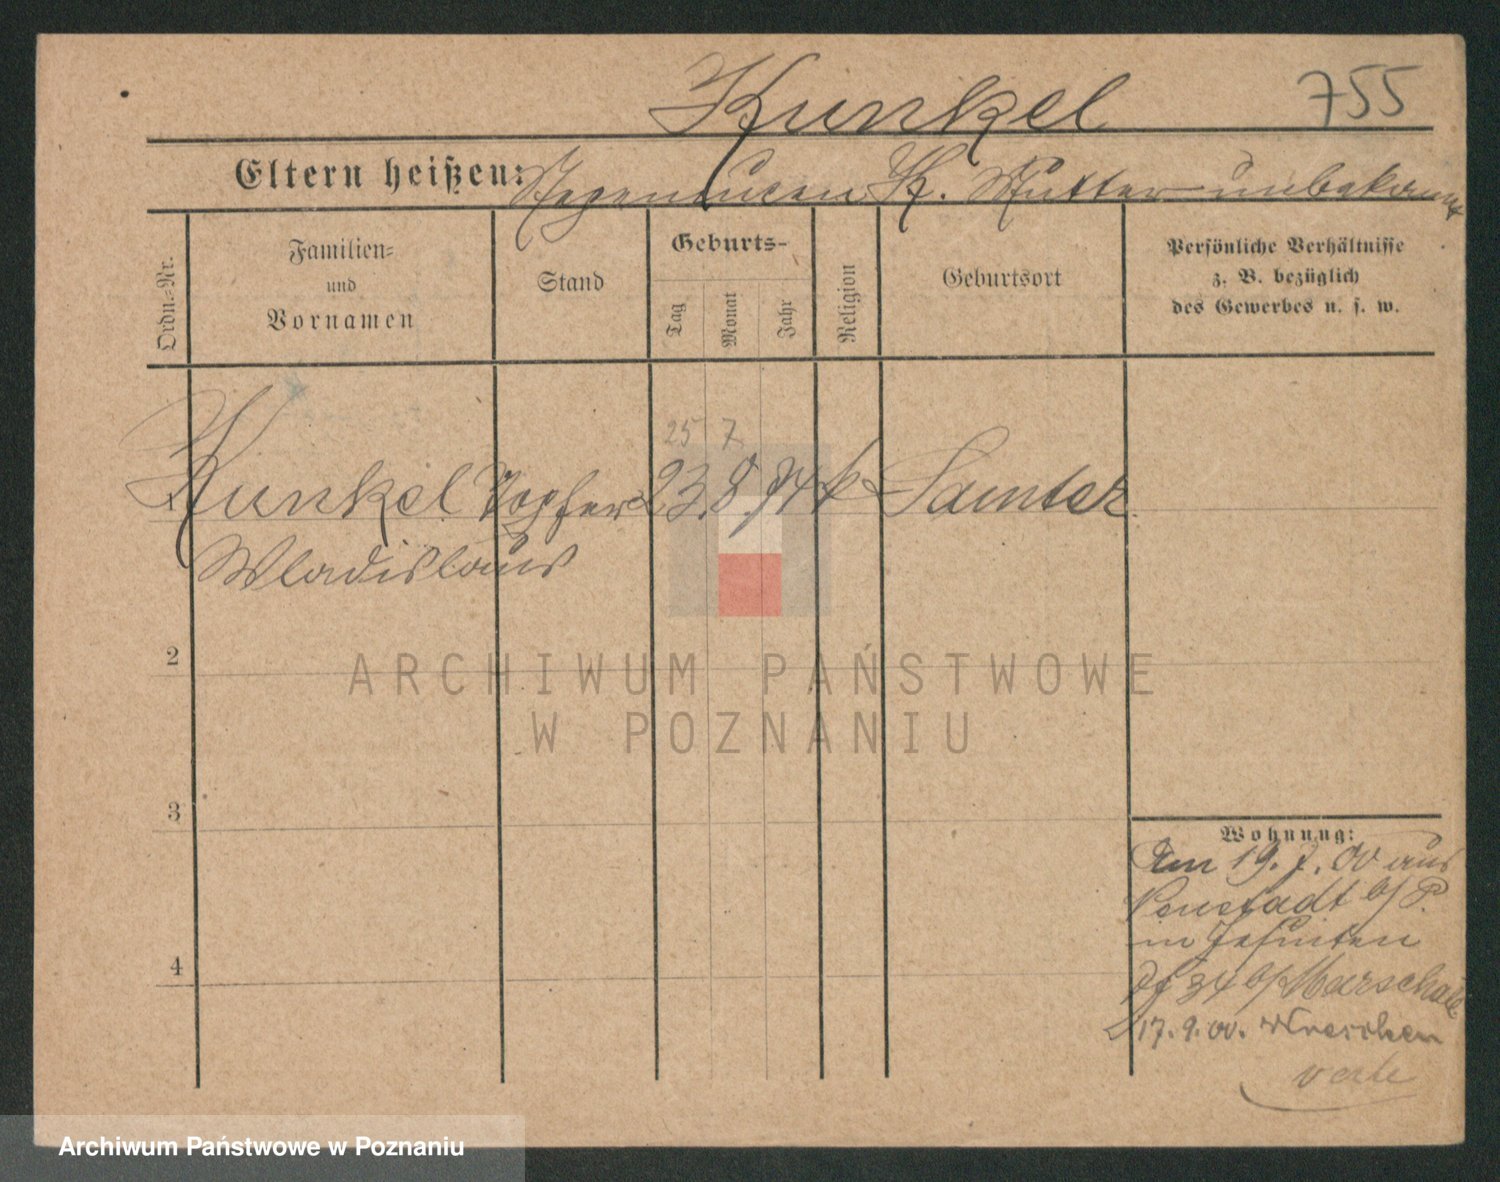 Kunkel 755
Eltern heißen: K. Mutter unbekannt
Ordn.=Nr.
Familien=
und
Vornamen
Stand
Geburts-
Tag
Monat
Jahr
Religion
Geburtsort
Persönliche Verhältnisse
z. B. bezüglich
des Gewerbes u. s. w.
25 7
1 Kunkel Töpfer 23. 8. 74 k Samter
Wladislaus
2
3
4
Wohnung:
Am 19. 7. 00 aus
Neustadt b/ P.
in Jesuiten
34 b/ Marschall
17. 9. 00. Wreschen
verte
ARCHIWUM PAŃSTWOWE
W POZNANIU
Archiwum Państwowe w Poznaniu